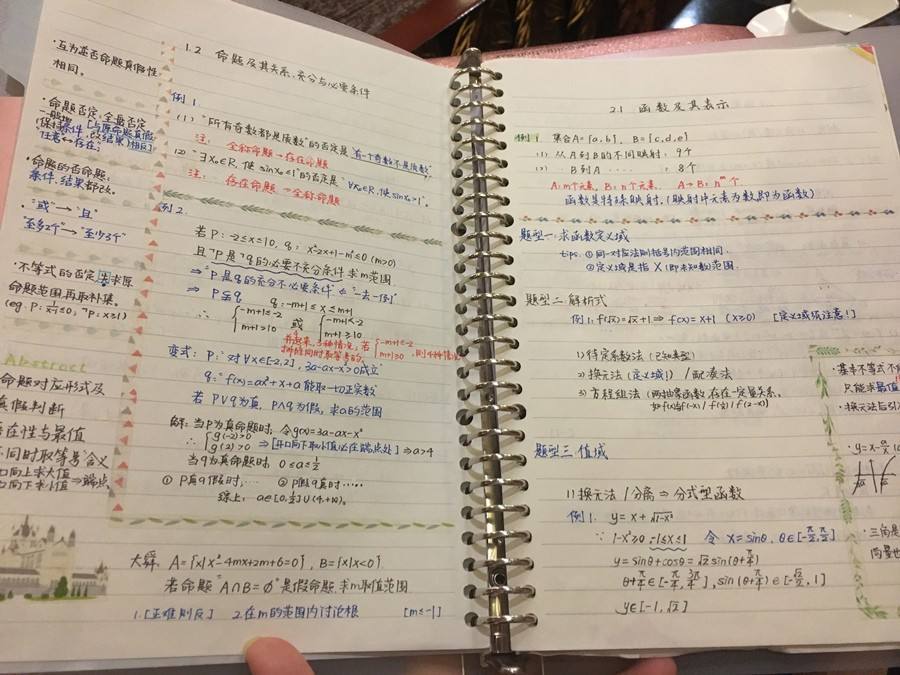 ·互为逆否命题真假性
相同。
·命题否定:全盘否定
一般地 [与原命题真假
(保持条件,改结果)相反]
任意↔存在;
·命题的否命题:
条件、结果都改。
·"或"→"且"
"至多2个"→"至少3个"
·不等式的否定,先求原
命题范围,再取补集。
Abstract
命题对应形式及
真假判断
存在性与最值
不同时取等号含义
口向上求大值
口向下求小值⇒端点
1.2 命题及其关系、充分与必要条件
例1.
(1) "所有奇数都是质数"的否定是"有一个奇数不是质数"
注: 全称命题→存在命题
(2) "∃x₀∈R,使sinx₀≤1"的否定是"∀x₀∈R,使sinx₀>1"。
注: 存在命题→全称命题
例2.
若P:-2≤x≤10, q: x²-2x+1-m²≤0 (m>0)
且¬P是¬q的必要不充分条件,求m范围
⇒ "P是q的充分不必要条件" ← "一去一倒"
⇒ P⫋q q:-m+1≤x≤m+1
∴ {-m+1≤-2 m+1>10 或 {-m+1<-2 m+1≥10
变式: P:"对∀x∈[-2,2], 3a-ax-x²>0成立"
q:"f(x)=ax²+x+a能取一切正实数"
若P∨q为真, P∧q为假,求a的范围
解:当P为真命题时,令g(x)=3a-ax-x²
∴ {g(-2)>0 g(2)>0 ⇒[开口向下取小值必在端点处]⇒a>4
当q为真命题时, 0≤a≤½
① P真q假时,… ② P假q真时…..
综上: a∈[0,½]∪(4,+∞).
A={x|x²-4mx+2m+6=0}, B={x|x<0}
若命题"A∩B=∅"是假命题,求m取值范围
1.[正难则反] 2.在m的范围内讨论根 [m≤-1]
2.1 函数及其表示
例1 集合A={a,b}, B={c,d,e}
(1) 从A到B的不同映射: 9个
(2) B到A …… : 8个
A:m个元素, B:n个元素. A→B: nᵐ个
函数是特殊映射.(映射中元素为数即为函数)
题型一:求函数定义域
tips. ①同一对应法则括号内范围相同.
②定义域是指 X (即未知数)范围.
题型二:解析式
例1: f(√x)=√x+1⇒ f(x)=x+1 (x≥0) [定义域须注意!]
1)待定系数法(已知类型)
2)换元法(定义域!)/配凑法
3)方程组法(两抽象函数存在一定量关系。
如f(x)与f(-x) / f(½) / f(2-x))
题型三:值域
1)换元法/分离⇒分式型函数
例1. y=x+√1-x²
∵ 1-x²≥0 ∴-1≤x≤1 令 x=sinθ, θ∈[-π/2,π/2]
y=sinθ+cosθ=√2sin(θ+π/4)
θ+π/4∈[-π/4,3π/4], sin(θ+π/4)∈[-√2/2,1]
y∈[-1,√2]
·基本不等式不
只能求最值
·换元法后引
·三角是